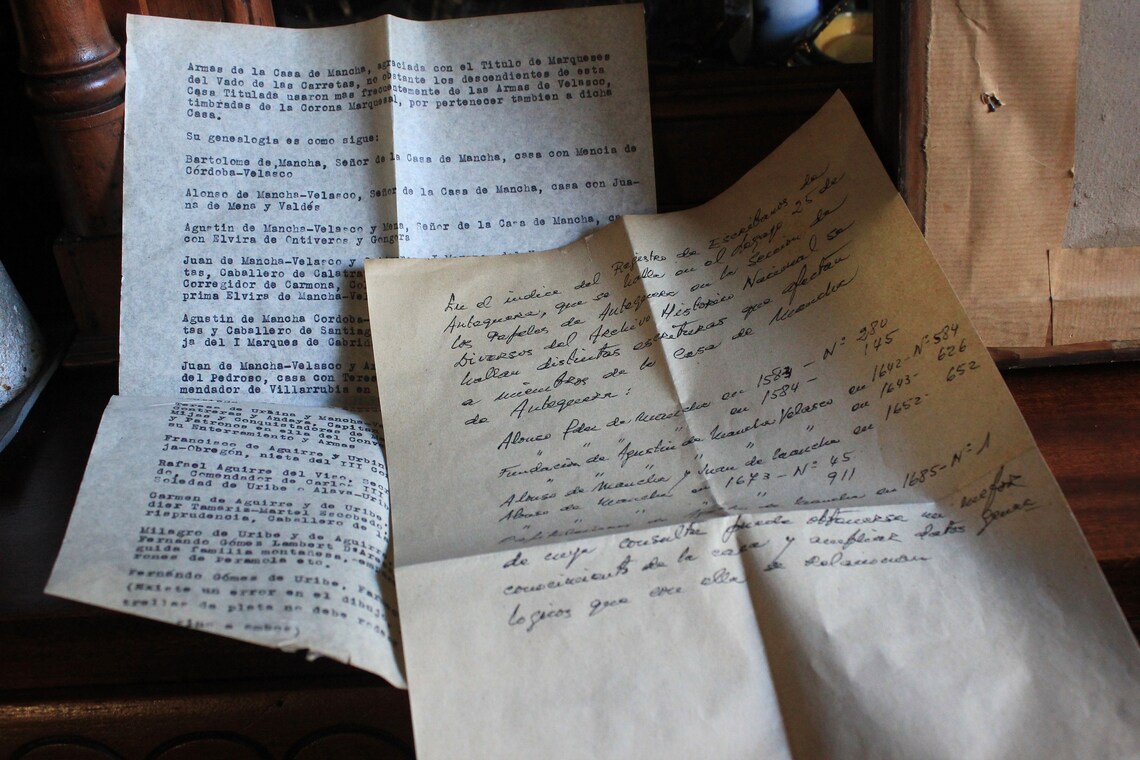 Armas de la Casa de Mancha, agraciada con el Titulo de Marqueses
del Vado de las Carretas, no obstante los descendientes de esta
Casa Titulada usaron mas frecuentemente de las Armas de Velasco,
timbradas de la Corona Marquesal, por pertenecer tambien a dicha
Casa.
Su genealogia es como sigue:
Bartolome de,Mancha, Señor de la Casa de Mancha, casa con Mencia de
Córdoba-Velasco
Alonso de Mancha-Velasco, Señor de la Casa de Mancha, casa con Jua-
na de Mena y Valdés
Agustin de Mancha-Velasco y Mena, Señor de la Casa de Mancha, ca
con Elvira de Ontiveros y Gongora
Juan de Mancha-Velasco y
tas, Caballero de Calatra
Corregidor de Carmona, Co
prima Elvira de Mancha-Vel
Agustin de Mancha Cordoba-
tas y Caballero de Santiag
ja del I Marques de Cabri
Juan de Mancha-Velasco y A
del Pedroso, casa con Teres
mendador de Villarrubia en
Teresa de Urbina y Mancha-
Contreras y Andaya, Capit
Mijas y Conquistadores de
y Patronos en ella del Conv
su Enterramiento y Armas
Francisco de Aguirre y Urbin
ja-Obregón, nieta del III Co
Rafael Aguirre del Viso, Seño
do, Comendador de Carlos III
Soledad de Uribe y Alava-Urib
Carmen de Aguirre y de Uribe,
dier Tamariz-Martel Escobedo,
risprudencia, Caballero de l
Milagro de Uribe y de Aguirre
Fernando Gómez Lambert D'Are
guida familia montañesa, em
rones de Peramola etc.
Fernándo Gómez de Uribe, Far
(Existe un error en el dibujo
trellas de plata no debe rode
sino a ambos)
En el índice del Registro de Escribanos de
Antequera, que se halla en el legajo 25 de
los Papeles de Antequera en la Sección de
Diversos del Archivo Histórico Nacional se
hallan distintas escrituras que afectan
a miembros de la Casa de Mancha
de Antequera:
Alonso Pérez de Mancha en 1583 - Nº 280
" " " " en 1584 - 145
Fundación de Agustin de Mancha Velasco en 1642 - Nº 584
" " " " en 1643 - 626
Alonso de Mancha y Juan de Mancha en 1652 - 652
Alonso de Mancha en 1673 - Nº 45
" " " 911
Mancha en 1685 - Nº 1
de cuya consulta puede obtenerse un mejor
conocimiento de la casa y ampliar datos genea
logicos que con ella se relacionan